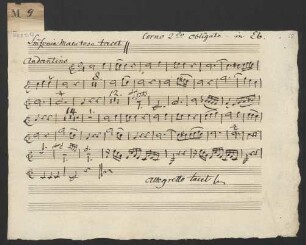 M 9
Sinfonia Maestoso tacet || Corno 2do obligato in Eb.
Andantino
12.
allegretto tacet